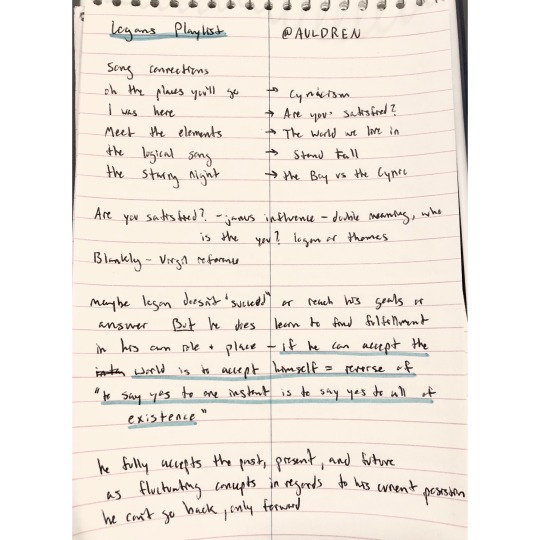 Logans Playlist @AULDREN
Song connections
oh the places you'll go → Cynicism
I was here → Are you satisfied?
Meet the elements → The World we live in
the logical song → Stand Tall
the Starry Night → the Boy vs the Cynic
Are you satisfied? - janus influence - double meaning, who
is the you? logan or thomas
Blankly - Virgil reference
maybe logan doesn't "succeed" or reach his goals or
answer But he does learn to find fulfillment
in his own role + place - if he can accept the
world is to accept himself = reverse of
"to say yes to one instant is to say yes to all of
existence"
he fully accepts the past, present, and future
as fluctuating concepts in regards to his current position
he can't go back, only forward